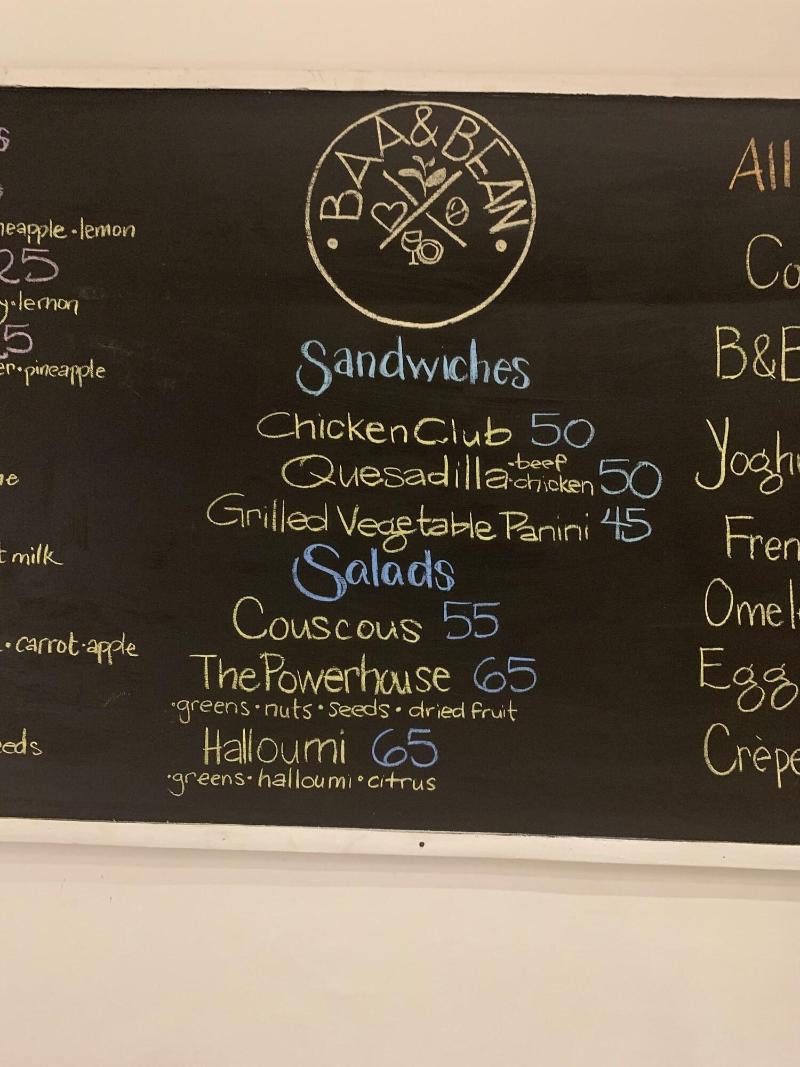 pineapple · lemon
25
lemon
pineapple
milk
carrot · apple
BAA & BEAN
Sandwiches
Chicken Club 50
Quesadilla ·beef ·chicken 50
Grilled Vegetable Panini 45
Salads
Couscous 55
The Powerhouse 65
·greens · nuts · seeds · dried fruit
Halloumi 65
·greens · halloumi · citrus
All
Co
B&B
Yogh
Fren
Omel
Egg
Crêpe